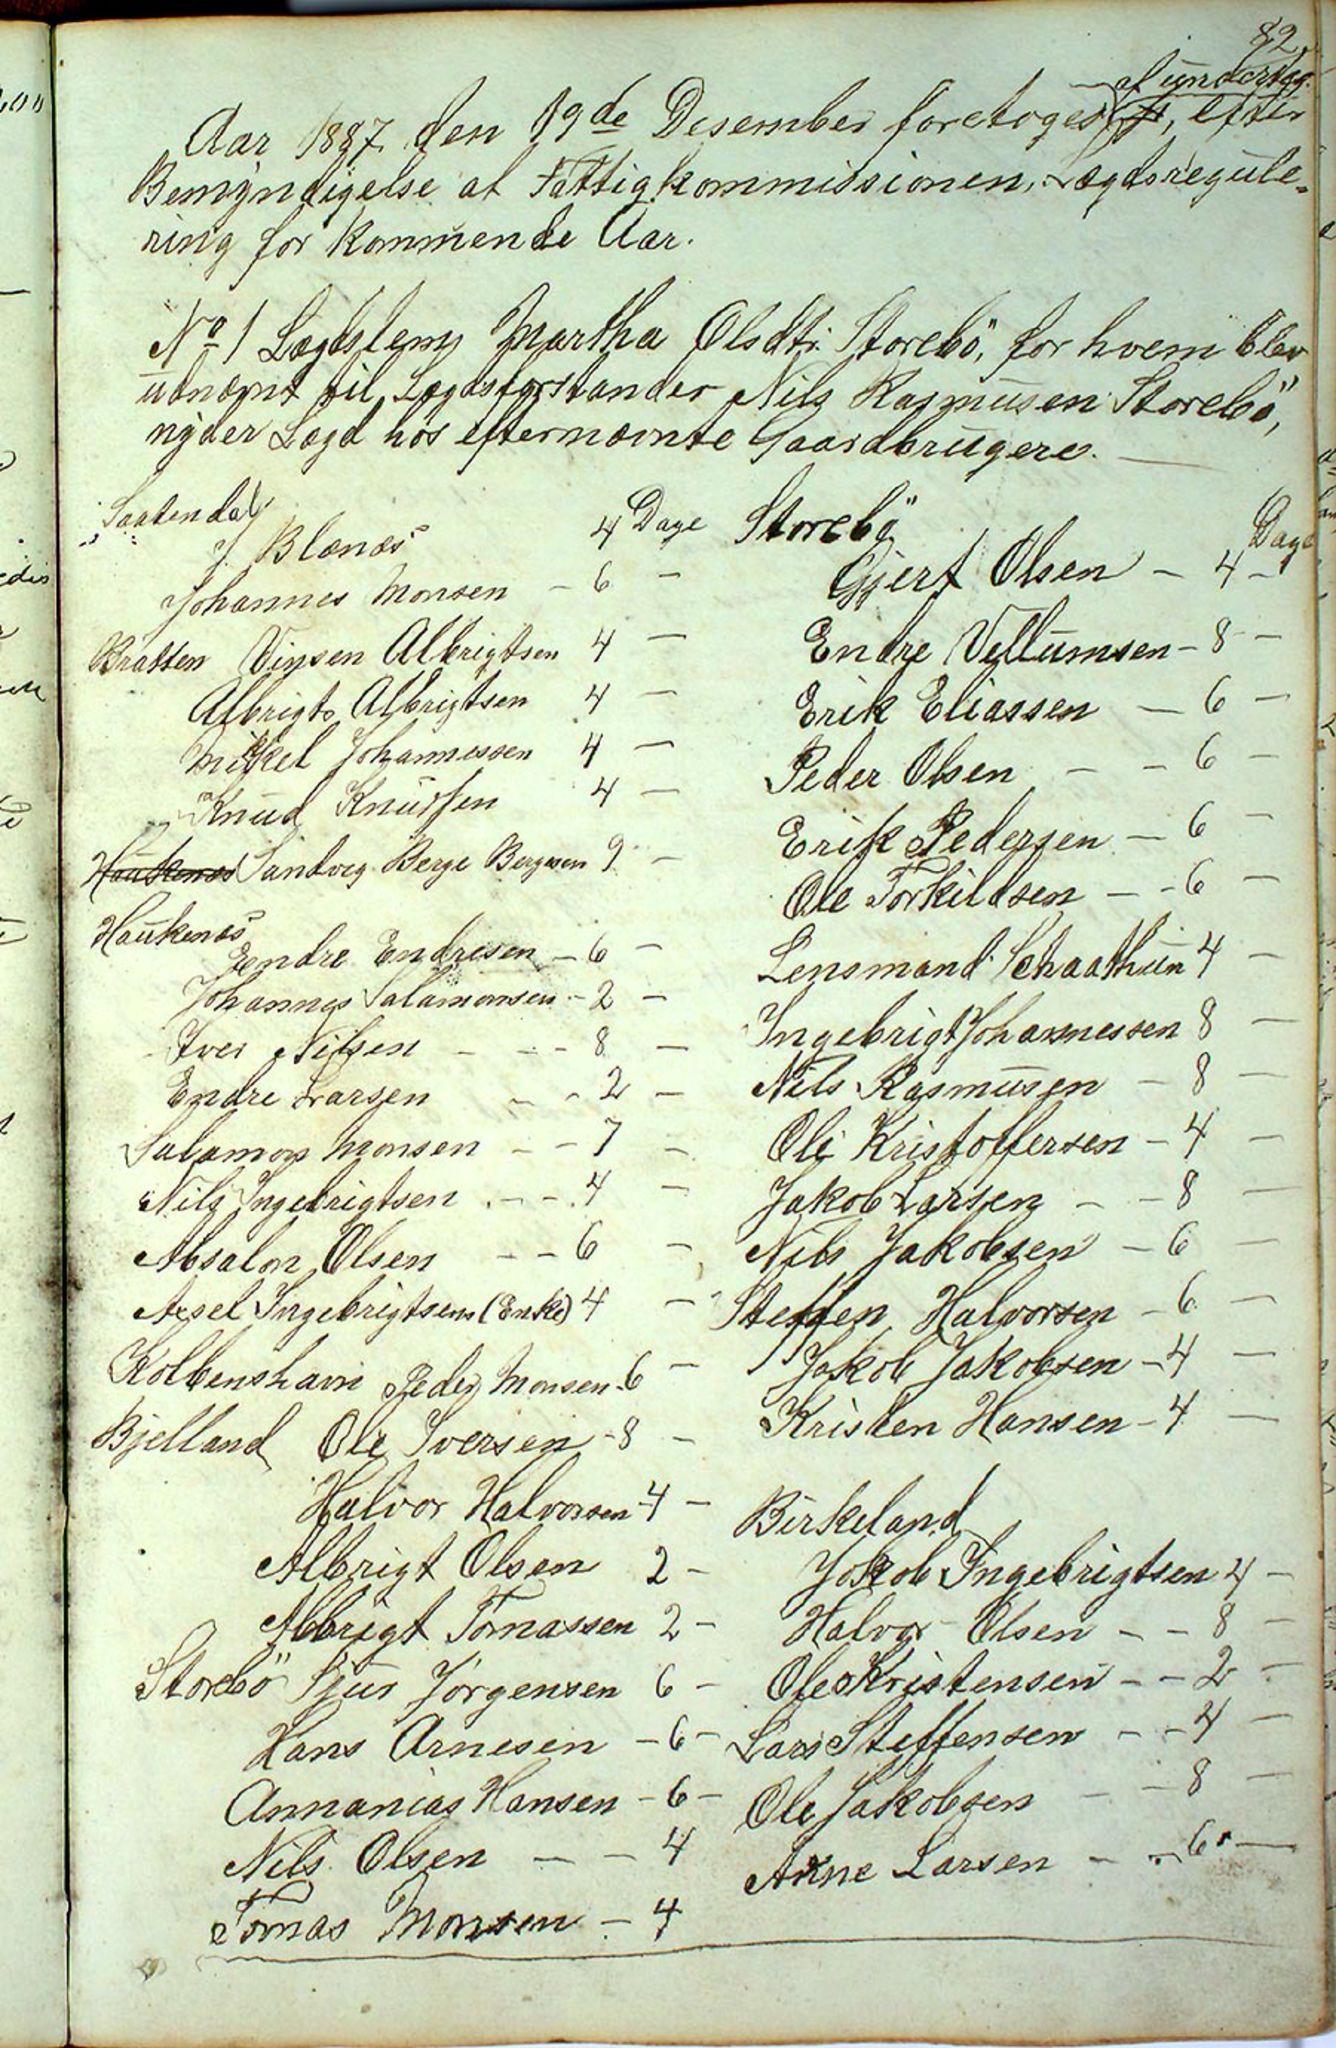 82.
af undertegn.
Aar 1887 den 19de Desember foretoges, efter
Bemyndigelse af Fattigkommissionen, Lægdsregule-
ring for kommende Aar.
No 1 Lægdslem Martha Olsdtr. Storebö, for hvem blev
udnævnt til Lægdsforstander Nils Rasmusen Storebö,
nyder Lægd hos efternævnte Gaardbrugere.
Saatendal
J. Blænæs 4 Dage
Johannes Monsen - 6 -
Bratten Vinsen Albrigtsen 4 -
Albrigt Albrigtsen 4 -
Mikkel Johannessen 4 -
Knud Knutsen 4 -
Haukenæs Sandvig Berge Bergesen 9 -
Haukenæs
Endre Endresen - 6 -
Johannes Salamonsen - 2 -
Iver Nilsen - - - 8 -
Endre Larsen - - 2 -
Salamon Monsen - - 7 -
Nils Ingebrigtsen - - 4 -
Absalon Olsen - - 6 -
Axel Ingebrigtsens (Enke) 4 -
Kolbenshavn Peder Monsen - 6 -
Bjelland Ole Iversen - 8 -
Halvor Halvorsen - 4 -
Albrigt Olsen 2 -
Albrigt Tomassen 2 -
Storebö Sjur Jörgensen 6 -
Hans Arnesen - 6 -
Annanias Hansen - 6 -
Nils Olsen - - 4
Tomas Monsen - 4
Storebö Dage
Gjert Olsen - 4 -
Endre Vellumsen - 8 -
Erik Eliassen - 6 -
Peder Olsen - - 6 -
Erik Pedersen - 6 -
Ole Torkildsen - - 6 -
Lensmand Schaathun 4 -
Ingebrigt Johannessen 8 -
Nils Rasmusen - 8 -
Ole Kristoffersen - 4 -
Jakob Larsen - - 8 -
Nils Jakobsen - 6 -
Steffen Halvorsen - 6 -
Jakob Jakobsen - 4 -
Kristen Hansen - 4 -
Birkeland
Jakob Ingebrigtsen 4 -
Halvor Olsen - - 8 -
Ole Kristensen - - 2 -
Lars Steffensen - - 4 -
Ole Jakobsen - - 8 -
Arne Larsen - - 6 -